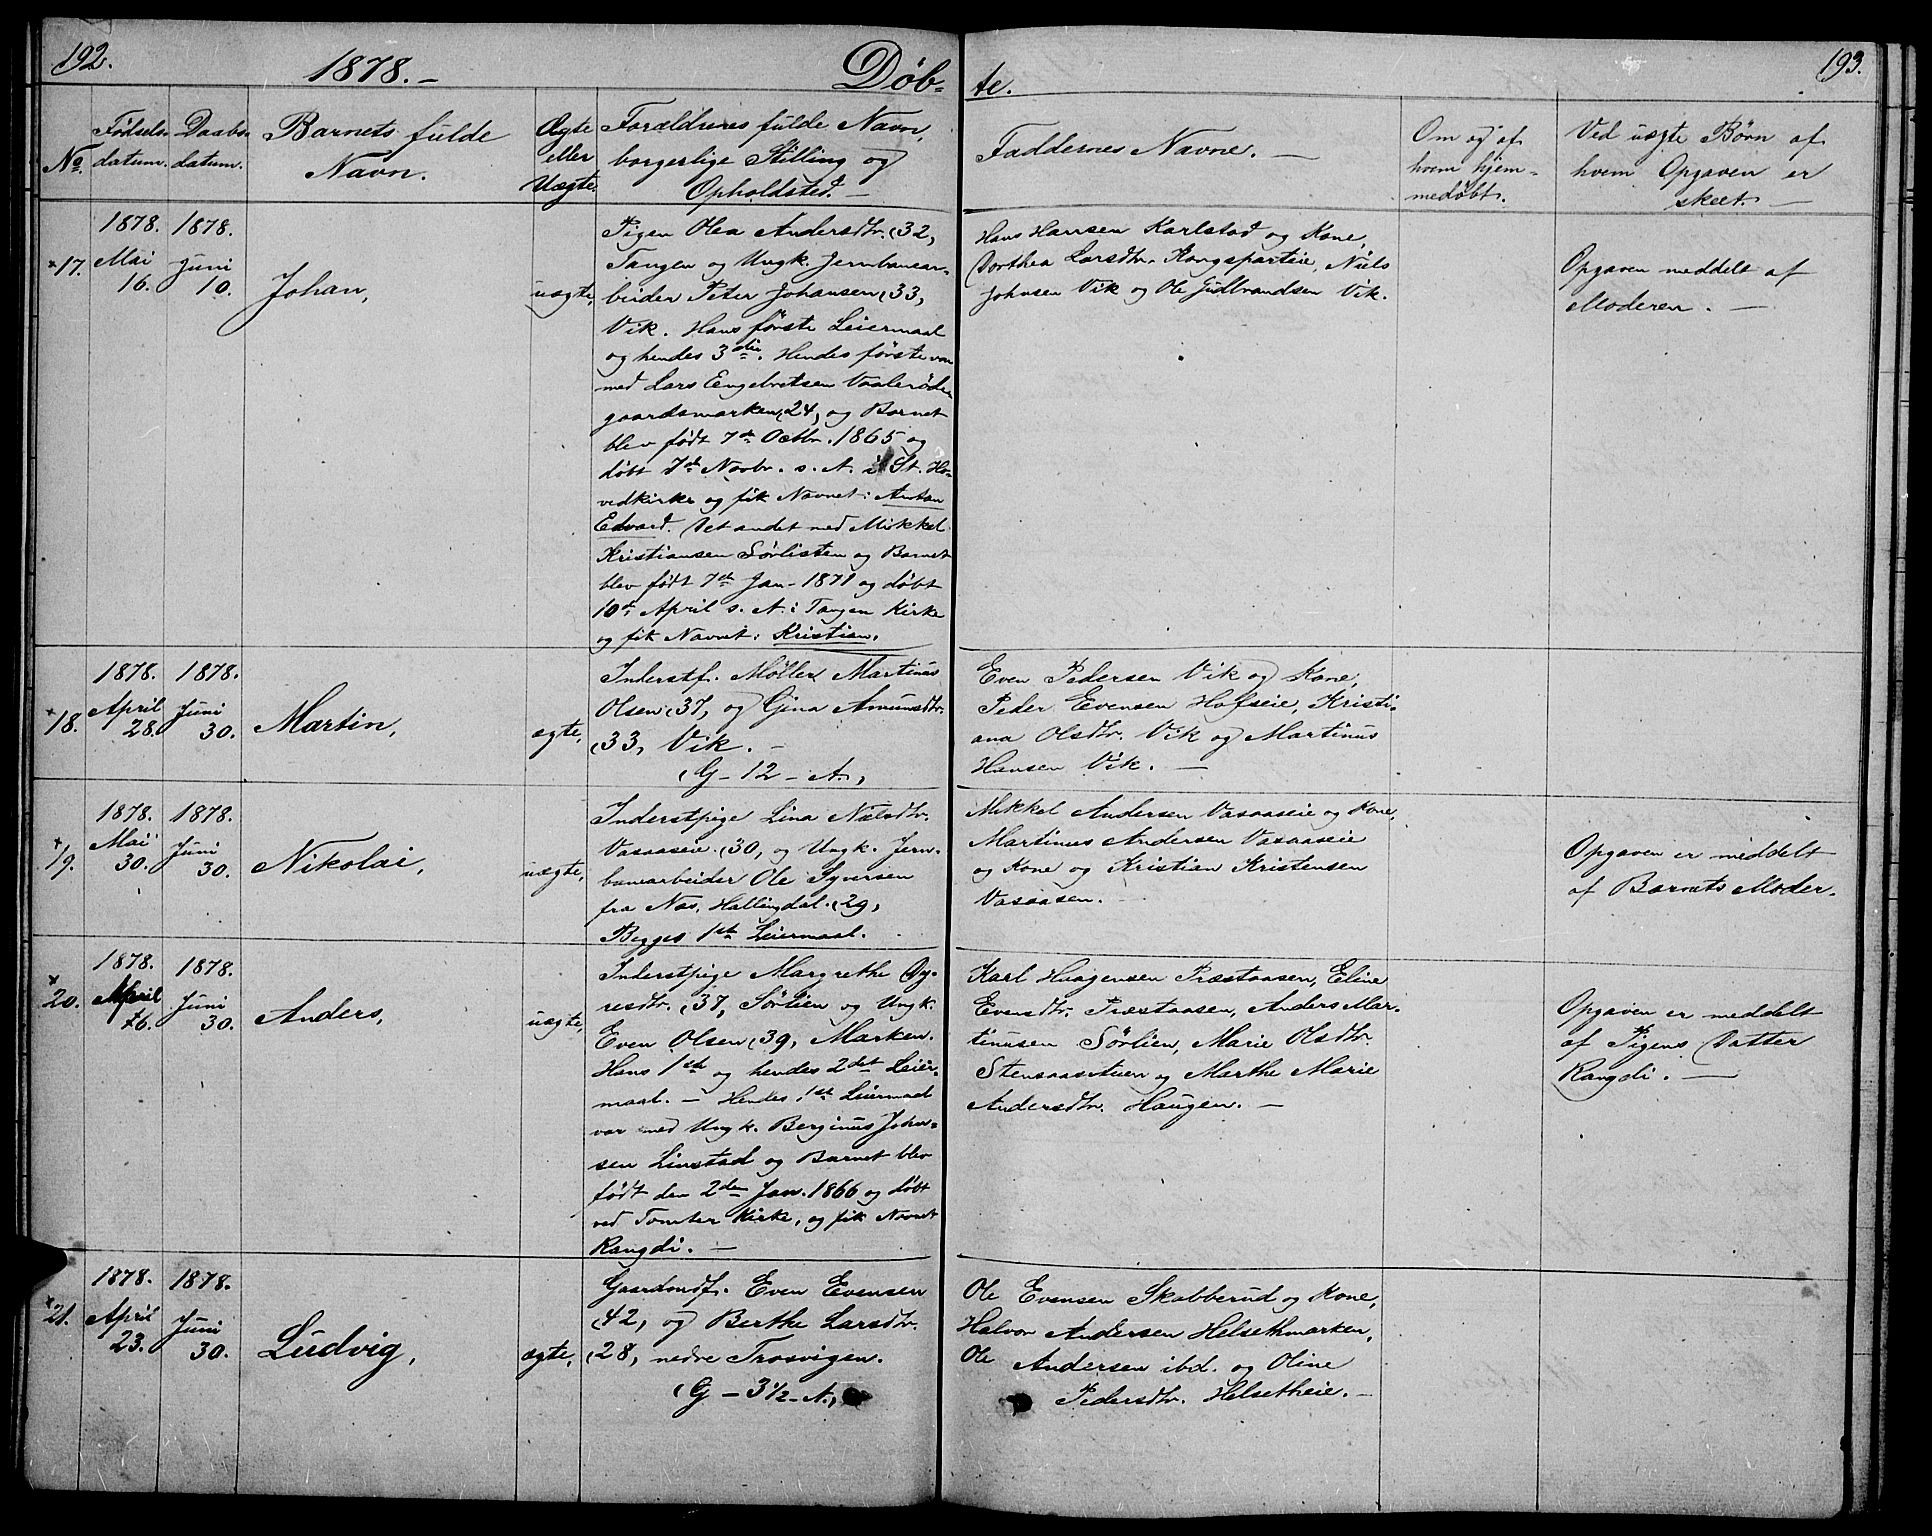 192.
1878. —
Døb-
te.
193.
No.
Fødsels-
datum.
Daabs-
datum.
Barnets fulde
Navn.
Ægte
eller
Uægte.
Forældrenes fulde Navn,
borgerlige Stilling og
Opholdsted. —
Faddernes Navne. —
Om og af
hvem hjem-
medøbt.
Ved uægte Børn af
hvem Opgaven er
skeet. —
17.
1878.
Mai
16.
1878.
Juni
10.
Johan,
uægte,
Pigen Olea Andersdtr. (32,
Tangen og Ungk. Jernbanear-
beider Peter Johansen (33,
Vik. Hans første Leiermaal
og hendes 3die. Hendes første var
med Lars Engebretsen
gaardsmarken (24, og Barnet
blev født 7de Octbr. 1865 og
døbt 7de Novbr. s. A. i St. Ho-
vedkirke og fik Navnet: Anton
Edvard. Det andet med Mikkel
Kristiansen Sørlisten og Barnet
blev født 7de Jan. 1871 og døbt
10de April s. A. i Tangen Kirke
og fik Navnet: Kristian.
Hans Hansen Karlstad og Kone,
Dorthea Larsdtr. Kongspartiie, Niels
Johnsen Vik og Ole Gudbrandsen Vik.
Opgaven meddelt af
Moderen. —
18.
1878.
April
28.
1878.
Juni
30.
Martin,
ægte,
Inderstf. Møller Martinus
Olsen (37, og Gina Amundsdtr.
(33, Vik. —
(G — 12 — A.,
Even Pedersen Vik og Kone,
Peder Evensen Hofseie, Kristi-
ana Olsdtr. Vik og Martinus
Hansen Vik. —
19.
1878.
Mai
30.
1878.
Juni
30.
Nikolai,
uægte,
Inderstpige Lina Nielsdtr.
Vasaaseie (30, og Ungk. Jern-
banearbeider Ole Syversen
fra Næs, Hallingdal. (29,
Begges 1ste Leiermaal.
Mikkel Andersen Vasaaseie og Kone,
Martinus Andersen Vasaaseie
og Kone og Kristian Kristensen
Vasaasen.
Opgaven er meddelt
af Barnets Moder.
20.
1878.
April
6.
1878.
Juni
30.
Anders,
uægte,
Inderstpige Margrethe Gy-
resdtr. (37, Sørlien og Ungk.
Even Olsen (39, Marken.
Hans 1ste og hendes 2det Leier-
maal. — Hendes 1ste Leiermaal
var med Ungk. Berginus John-
sen Linstad og Barnet blev
født den 2den Jan. 1866 og døbt
ved Tomter Kirke, og fik Navnet
Rangdi. —
Karl Haagensen Præstaasen, Eline
Evensdtr. Præstaasen, Anders Mar-
tinusen Sørlien, Marie Olsdtr.
Stensaasstuen og Marthe Marie
Andersdtr. Haugen. —
Opgaven er meddelt
af Pigens Datter
Rangdi. —
21.
1878.
April
23.
1878.
Juni
30.
Ludvig,
ægte,
Gaardmdf. Even Evensen
(42, og Berthe Larsdtr.
(28, nedre Trosvigen.
(G — 3 1/2 — A.,
Ole Evensen Skabberud og Kone,
Halvor Andersen Helsethmarken,
Ole Andersen ibd. og Oline
Pedersdtr. Helsetheie. —